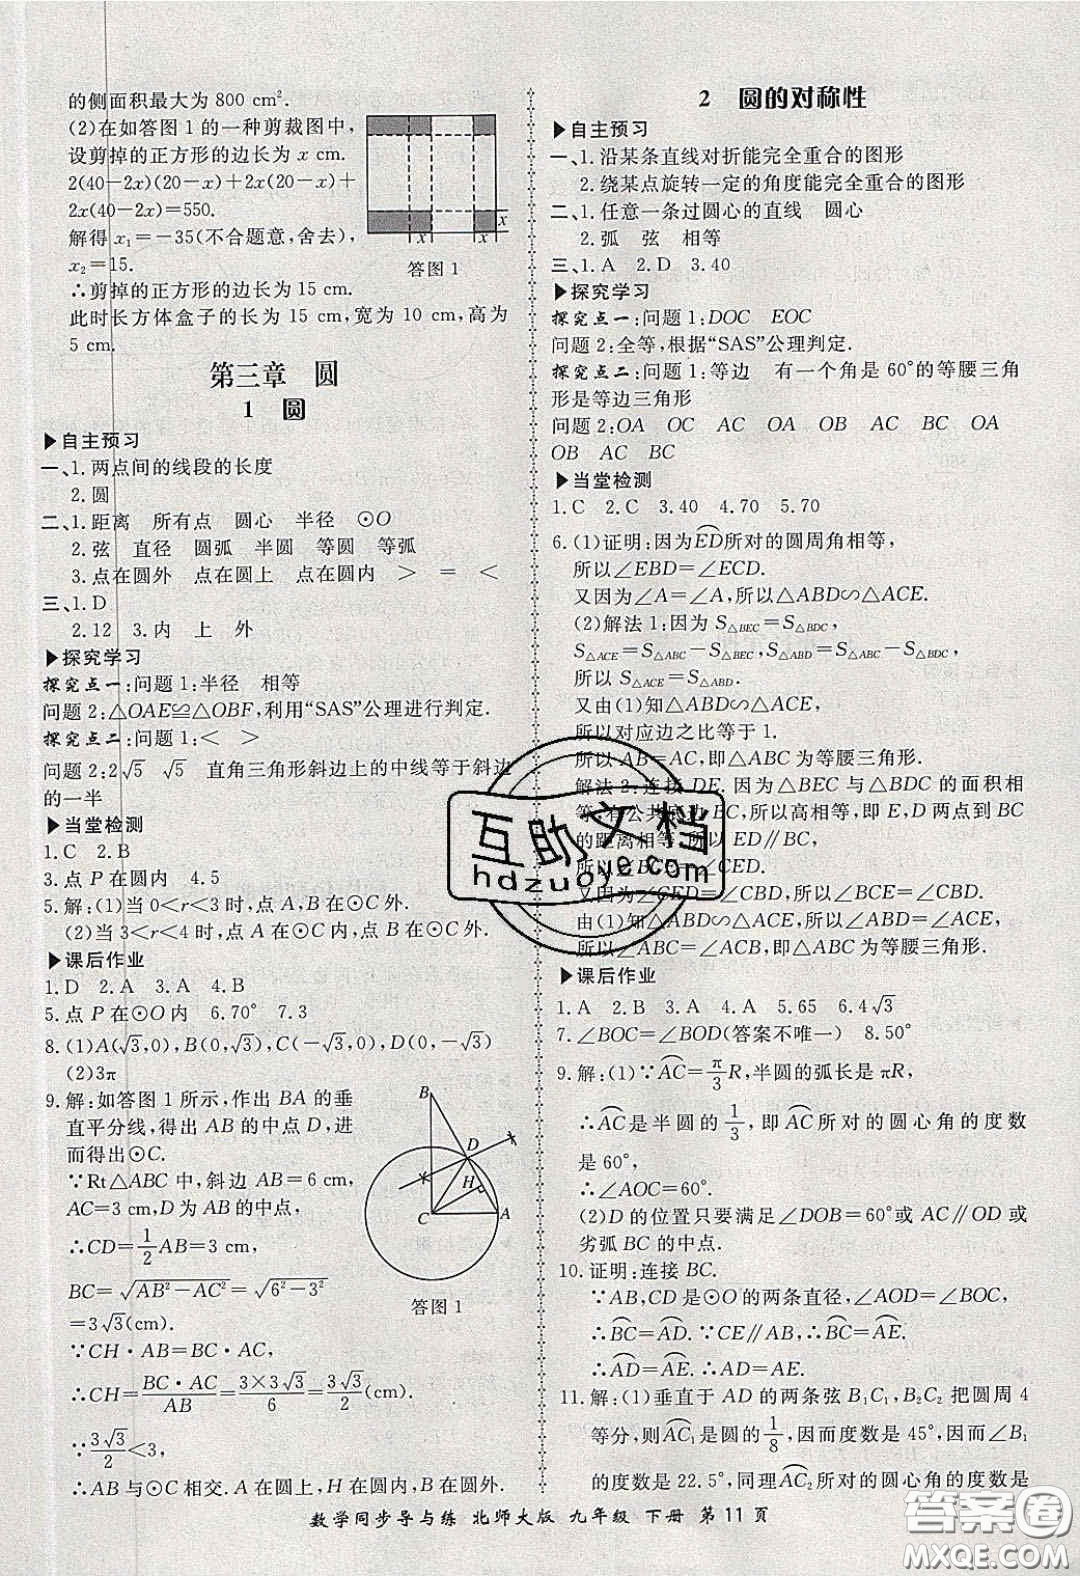 的侧面积最大为 800 cm².
(2)在如答图 1 的一种剪裁图中,
设剪掉的正方形的边长为 x cm.
2(40-2x)(20-x)+2x(20-x)+
2x(40-2x)=550.
解得 x₁=-35(不合题意,舍去),
x₂=15.
∴剪掉的正方形的边长为 15 cm.
此时长方体盒子的长为 15 cm,宽为 10 cm,高为
5 cm.
x
x
x
答图 1
第三章 圆
1 圆
▶自主预习
一、1.两点间的线段的长度
2.圆
二、1.距离 所有点 圆心 半径 ⊙O
2.弦 直径 圆弧 半圆 等圆 等弧
3.点在圆外 点在圆上 点在圆内 > = <
三、1.D
2.12 3.内 上 外
▶探究学习
探究点一:问题 1:半径 相等
问题 2:△OAE≌△OBF,利用“SAS”公理进行判定.
探究点二:问题 1:< >
问题 2:2√5 √5 直角三角形斜边上的中线等于斜边
的一半
▶当堂检测
1.C 2.B
3.点 P 在圆内 4.5
5.解:(1)当 0<r<3 时,点 A、B 在⊙C 外.
(2)当 3<r<4 时,点 A 在⊙C 内,点 B 在⊙C 外.
▶课后作业
1.D 2.A 3.A 4.B
5.点 P 在⊙O 内 6.70° 7.3
8.(1)A(√3,0),B(0,√3),C(-√3,0),D(0,-√3)
(2)3π
9.解:如答图 1 所示,作出 BA 的垂
直平分线,得出 AB 的中点 D,进
而得出⊙C.
∵Rt△ABC 中,斜边 AB=6 cm,
AC=3 cm,D 为 AB 的中点,
∴CD=1/2AB=3 cm,
BC=√(AB²-AC²)=√(6²-3²)
=3√3(cm).
∵CH·AB=BC·AC,
∴CH=BC·AC/AB=3×3√3/6=3√3/2(cm).
∵3√3/2<3,
∴AB 与⊙C 相交.A 在圆上,H 在圆内,B 在圆外.
B
D
H
C
A
答图 1
2 圆的对称性
▶自主预习
一、1.沿某条直线对折能完全重合的图形
2.绕某点旋转一定的角度能完全重合的图形
二、1.任意一条过圆心的直线 圆心
2.弧 弦 相等
三、1.A 2.D 3.40
▶探究学习
探究点一:问题 1:DOC EOC
问题 2:全等,根据“SAS”公理判定.
探究点二:问题 1:等边 有一个角是 60°的等腰三角
形是等边三角形
问题 2:OA OC AC OA OB AC BC OA
OB AC BC
▶当堂检测
1.C 2.C 3.40 4.70 5.70
6.(1)证明:因为E͡D所对的圆周角相等,
所以∠EBD=∠ECD.
又因为∠A=∠A,所以△ABD∽△ACE.
(2)解法 1:因为 S△BEC=S△BDC,
S△ACE=S△ABC-S△BEC,S△ABD=S△ABC-S△BDC,
所以 S△ACE=S△ABD.
又由(1)知△ABD∽△ACE,
所以对应边之比等于 1.
所以 AB=AC,即△ABC 为等腰三角形.
解法 2:连接 DE.因为△BEC 与△BDC 的面积相
等,有公共底边 BC,所以高相等,即 E,D 两点到 BC
的距离相等,所以 ED∥BC.
所以∠BCE=∠CED.
又因为∠CED=∠CBD,所以∠BCE=∠CBD.
由(1)知△ABD∽△ACE,所以∠ABD=∠ACE,
所以∠ABC=∠ACB,即△ABC 为等腰三角形.
▶课后作业
1.A 2.B 3.A 4.A 5.65 6.4√3
7.∠BOC=∠BOD(答案不唯一) 8.50°
9.解:(1)∵A͡C=π/3R,半圆的弧长是 πR,
∴A͡C是半圆的1/3,即A͡C所对的圆心角的度数
是 60°,
∴∠AOC=60°.
(2)D 的位置只要满足∠DOB=60°或 AC∥OD 或
劣弧 BC 的中点.
10.证明:连接 BC.
∵AB,CD 是⊙O 的两条直径,∠AOD=∠BOC,
∴B͡C=A͡D.∵CE∥AB,∴B͡C=A͡E.
∴A͡D=A͡E.∴AD=AE.
11.解:(1)垂直于 AD 的两条弦 B₁C₁,B₂C₂ 把圆周 4
等分,则A͡C₁是圆的1/8,因而度数是 45°,因而∠B₁
的度数是 22.5°,同理A͡C₂所对的圆心角的度数是
数学同步导与练 北师大版 九年级 下册 第 11 页
互助文档
hdzuoye.com
答案圈
MXQE.COM